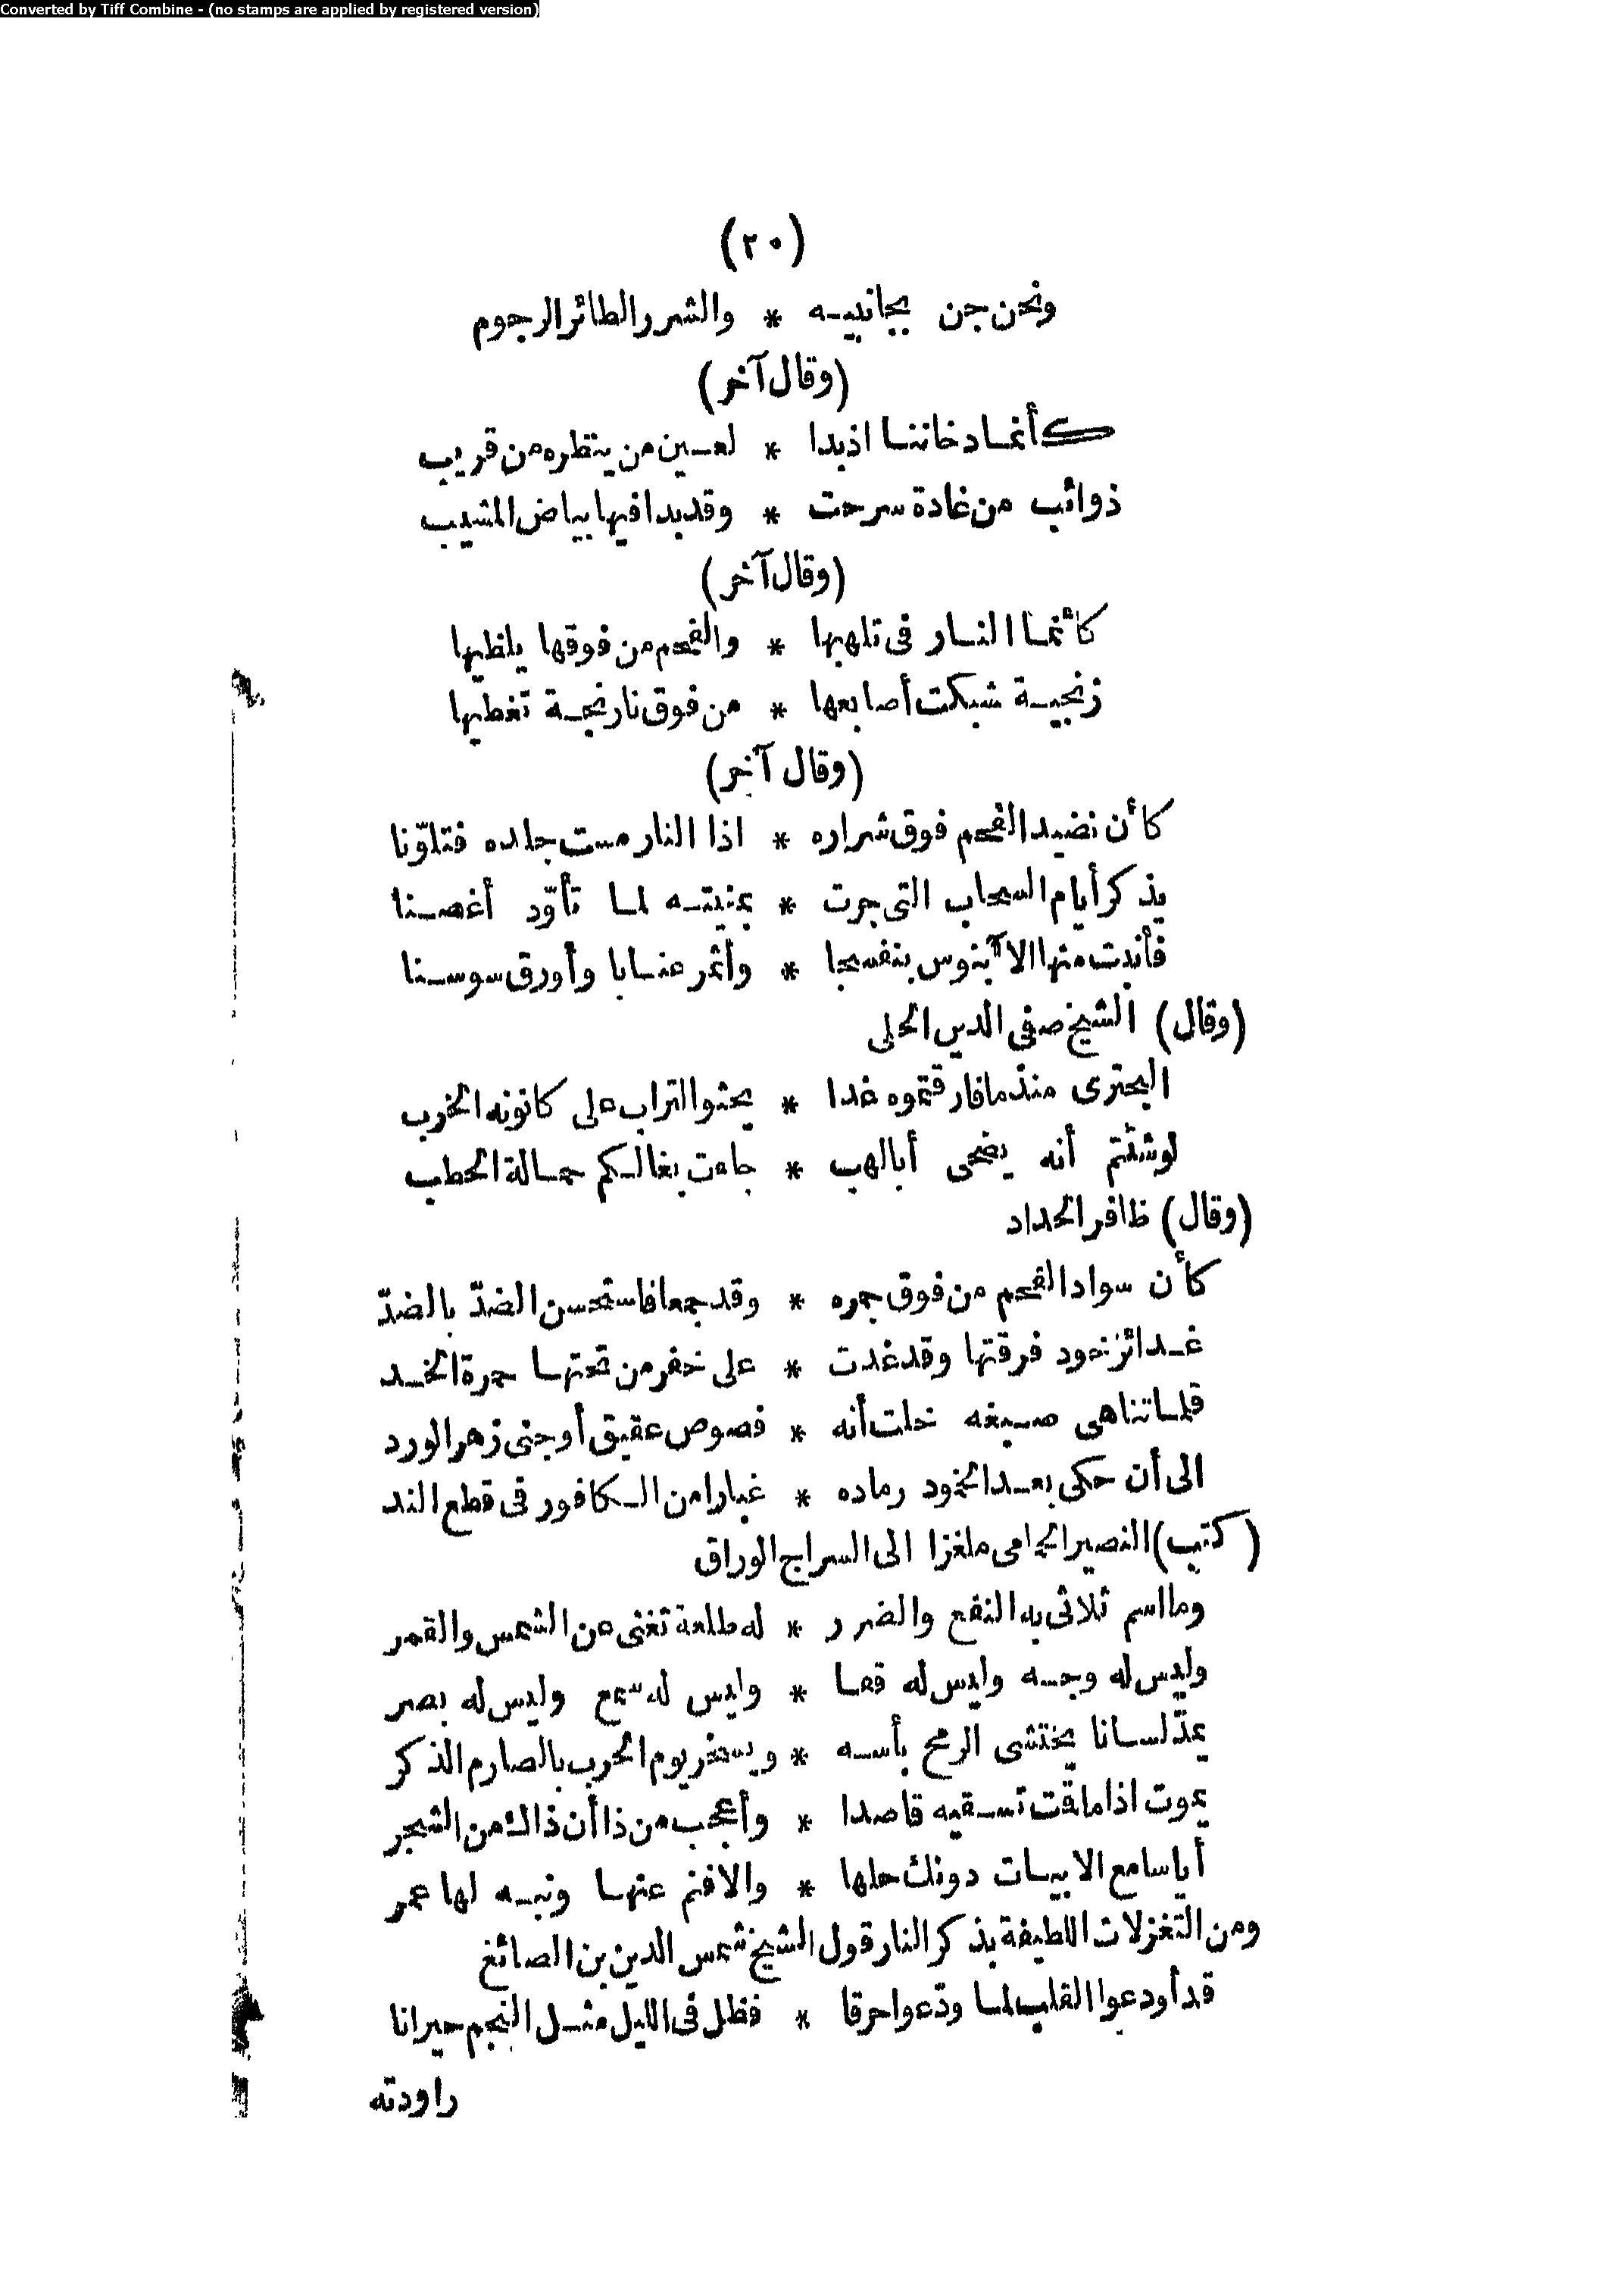 Converted by Tiff Combine - (no stamps are applied by registered version)
(٢٠)
ونحن جن بجانبيه * والشرر الطائر الرجوم
(وقال آخر)
كأنما دخاننا اذ بدا * لعين من ينظره من قريب
ذوائب من غادة سرحت * وقد بدا فيها بياض المشيب
(وقال آخر)
كأنما النار فى تلهبها * والفحم من فوقها يلظيها
زنجية شبكت أصابعها * من فوق نارنجة تغطيها
(وقال آخر)
كأن نضيد الفحم فوق شراره * اذا النار مست جلده فتلوّنا
يذكر أيام السحاب التى جرت * بمنبته لما تأوّد أغصنا
فأبدت منها الآبنوس بنفسجا * وأثمر عنابا وأورق سوسنا
(وقال) الشيخ صفى الدين الحلى
البحترى منذ ما فارقتموه غدا * يحثو التراب على كانونه الخرب
لو شئتم أنه يضحى أبا لهب * جاءت بغالكم حمالة الحطب
(وقال) ظافر الحداد
كأن سواد الفحم من فوق جمره * وقد جمعا فاستحسن الضدّ بالضدّ
غدائر خود فرقتها وقد غدت * على خفر من تحتها حمرة الخد
فلما تناهى صبغه خلت أنه * فصوص عقيق أو جنى زهر الورد
الى أن حكى بعد الخمود رماده * غبارا من الكافور فى قطع الند
(كتب) النصير الحمامى ملغزا الى السراج الوراق
وما اسم ثلاثى به النفع والضرر * له طلعة تغنى عن الشمس والقمر
وليس له وجه وليس له قفا * وليس له سمع وليس له بصر
يمدّ لسانا يختشى الرمح بأسه * ويسخر يوم الحرب بالصارم الذكر
يموت اذا ما قمت تسقيه قاصدا * وأعجب من ذا أن ذاك من الشجر
أيا سامع الابيات دونك حلها * والا فنم عنها ونبه لها عمر
ومن التغزلات اللطيفة بذكر النار قول الشيخ شمس الدين بن الصائغ
قد أودعوا القلب لما ودّعوا حرقا * فظل فى الليل مثل النجم حيرانا
راودته